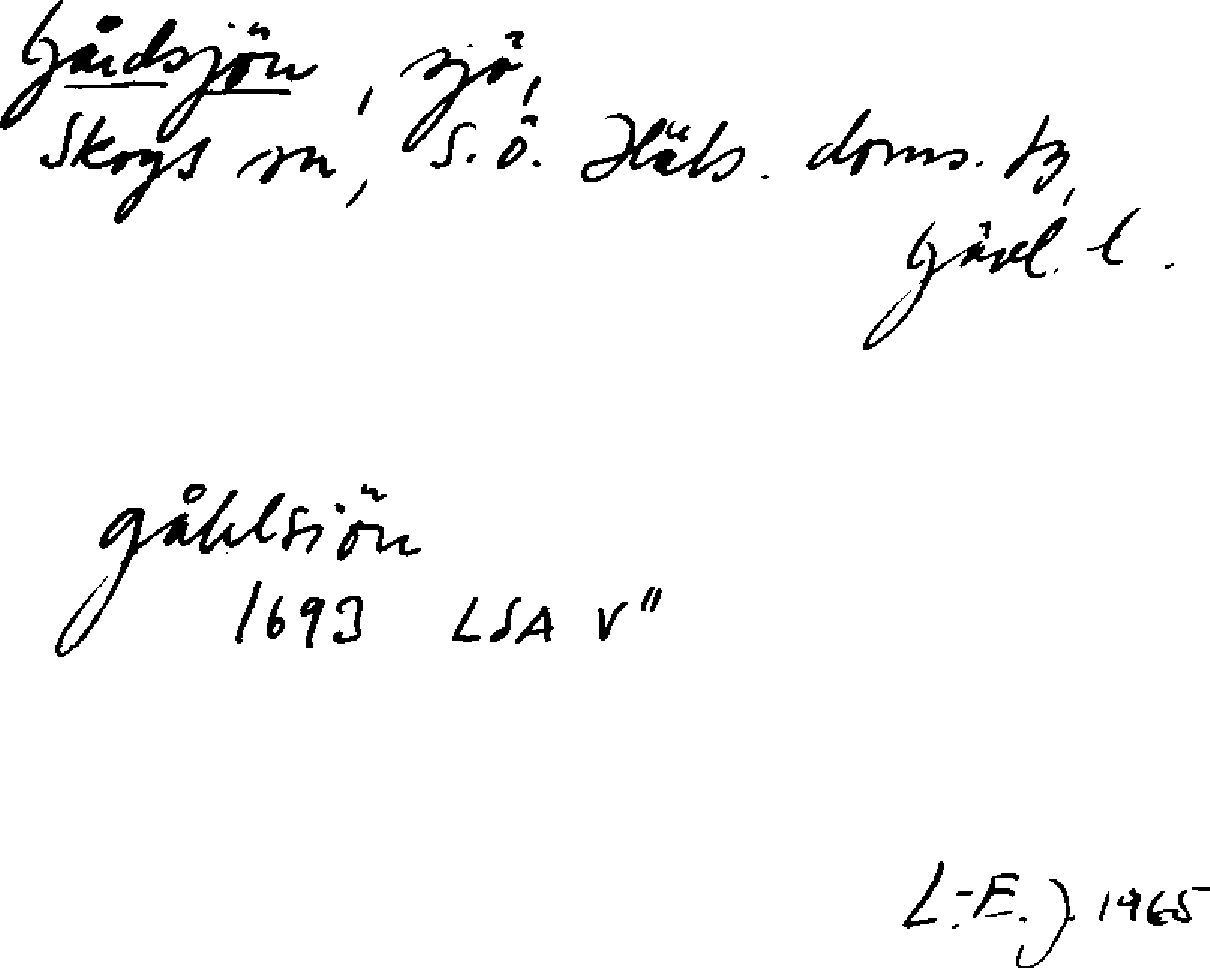 Gårdsjön, sjö,
Skogs sn, S.Ö. Häls. doms. tg,
Gävl. l.
gåhlsiön
1693 LSA V"
L.-E. J. 1965